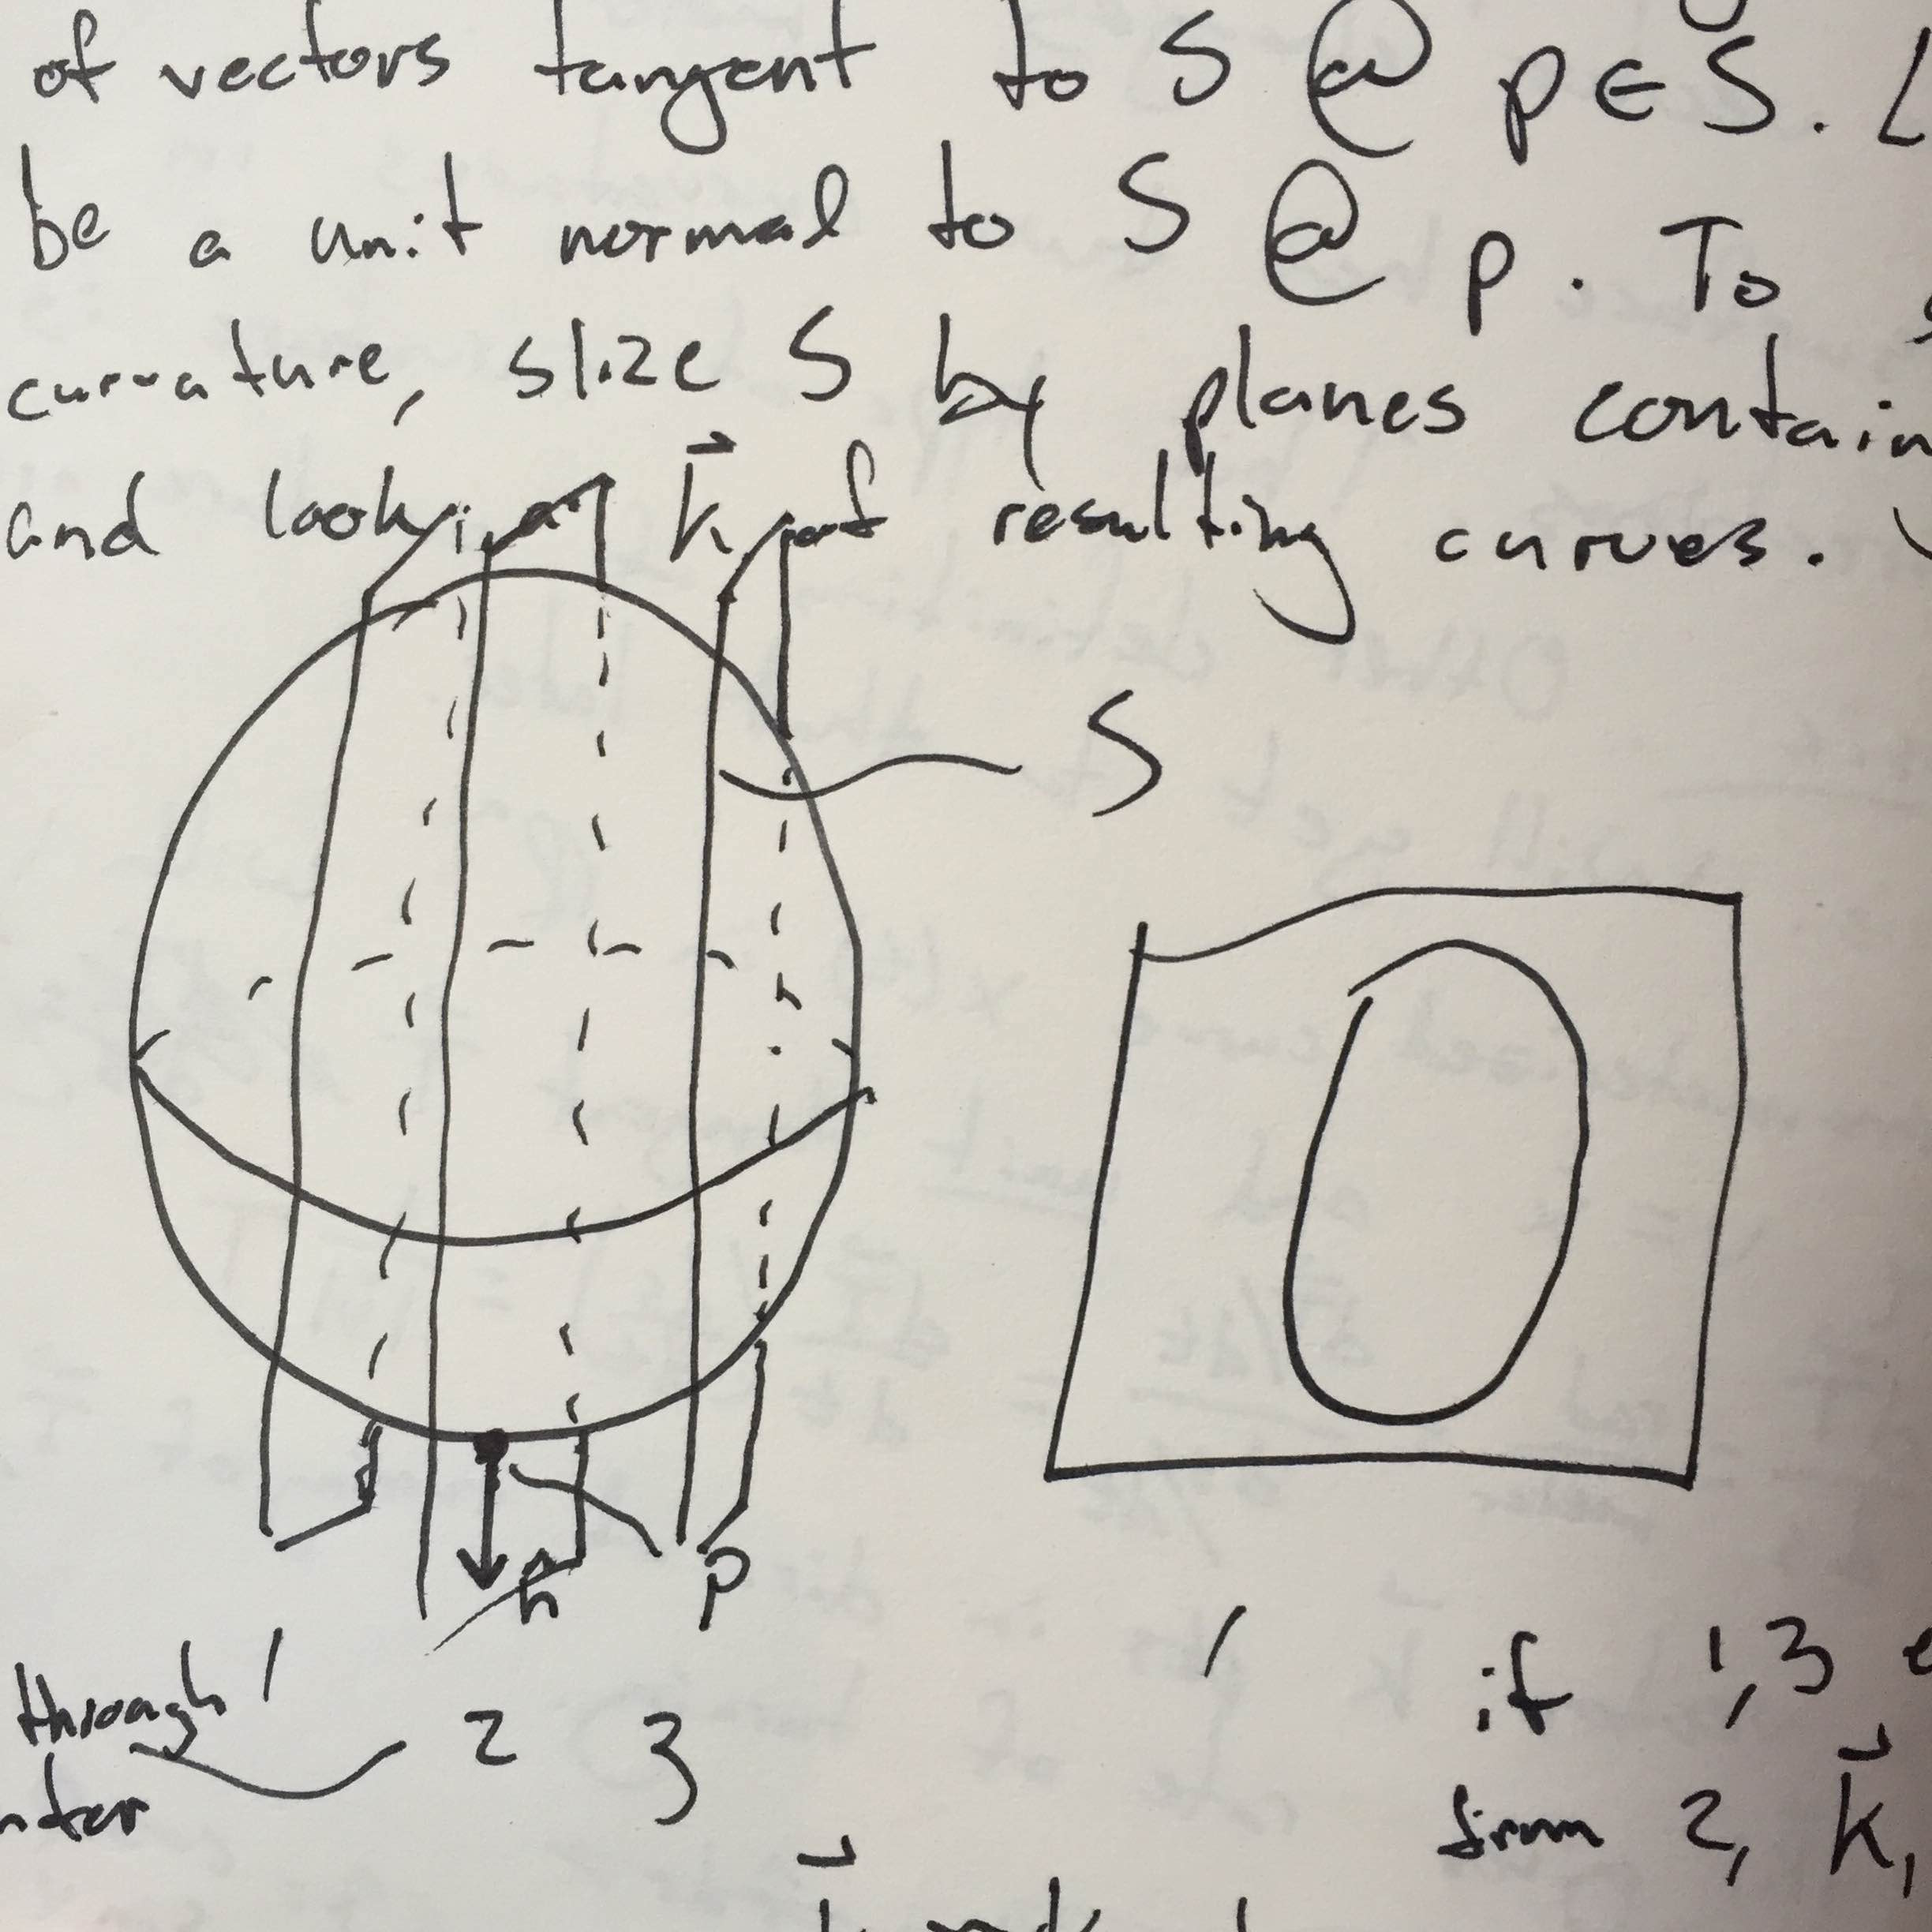 of vectors tangent to S @ p ∈ S.
be a unit normal to S @ p. To
curvature, slize S by planes contain
and look at k⃗ of resulting curves.
S
n̂ p
through 1 2 3
1 if 1,3
from 2, k⃗,